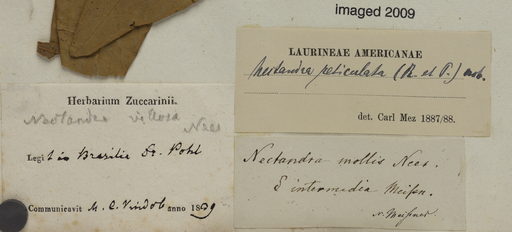 imaged 2009
LAURINEAE AMERICANAE
Nectandra reticulata (R. et P.) nob.
det. Carl Mez 1887/88.
Herbarium Zuccarinii.
Nectandra villosa
Nees
Legit in Brasilia Dr. Pohl
Communicavit M. C. Vindob anno 1839
Nectandra mollis Nees.
δ intermedia Meisn.
Meißner